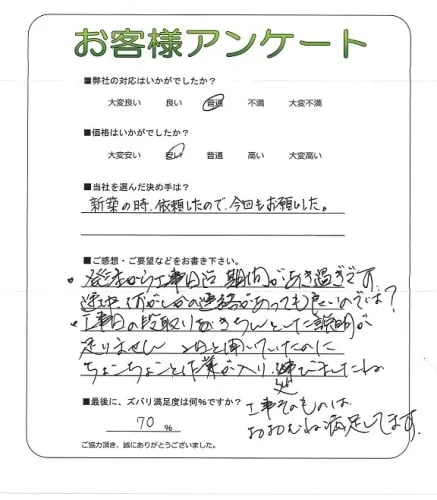 お客様アンケート
■弊社の対応はいかがでしたか?
大変良い 良い 普通 不満 大変不満
■価格はいかがでしたか?
大変安い 安い 普通 高い 大変高い
■当社を選んだ決め手は?
新築の時、依頼したので、今回もお願いした。
■ご感想・ご要望などをお書き下さい。
・発注から工事日迄 期間があき過ぎです
途中、何がしかの連絡があっても良いのでは?
・工事日の段取りをきちんとした説明が
足りません 2日と聞いていたのに
ちょこちょこと作業が入り、延びましたね
工事そのものは
おおむね満足してます。
■最後に、ズバリ満足度は何%ですか?
70 %
ご協力頂き、誠にありがとうございました。